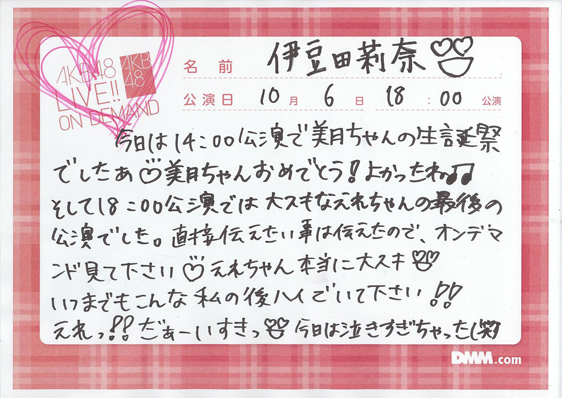 AKB48
LIVE!!
ON DEMAND
AKB
48
名前 伊豆田莉奈
公演日 10月 6日 18:00 公演
今日は14:00公演で美月ちゃんの生誕祭
でしたぁ♡美月ちゃんおめでとう!よかったね♫
そして18:00公演では大スキなえれちゃんの最後の
公演でした。直接伝えたい事は伝えたので、オンデマ
ンド見て下さい♡えれちゃん本当に大スキ
いつまでもこんな私の後ハイでいて下さい!!
えれっ!!だぁーいすきっ 今日は泣きすぎちゃった(笑)
DMM.com